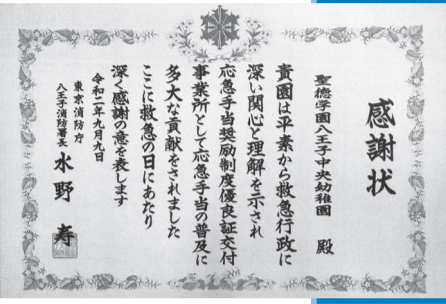 感謝状
聖徳学園八王子中央幼稚園 殿
貴園は平素から救急行政に
深い関心と理解を示され
応急手当奨励制度優良証交付
事業所として応急手当の普及に
多大な貢献をされました
ここに救急の日にあたり
深く感謝の意を表します
令和二年九月九日
東京消防庁
八王子消防署長 水野 寿